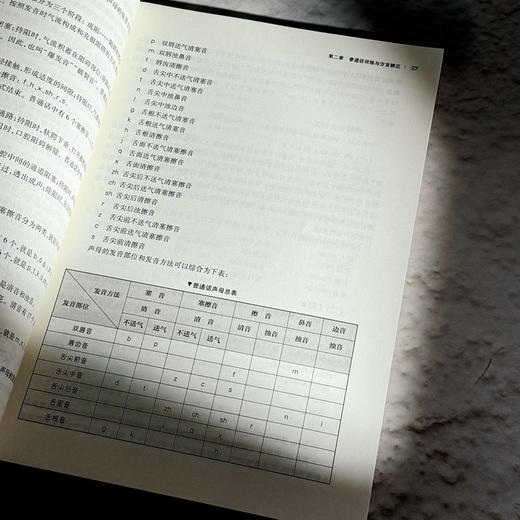 分为三个阶段:成阻——
按照发音时气流构成和克服阻碍的
塞;持阻时,气流积蓄在阻碍部位
因此,也叫“爆发音”、“破裂音”。
接近,形成适度的间隙;持阻时
音:f、h、x、sh、r、s。
式结束。普通话中有6个塞擦音
通路;持阻时,软腭下垂,打开鼻
时,口腔阻碍解除。普通话
腔中间的通道阻塞;持阻时
过,透出成声;除阻时
第二章 普通话训练与方言辨正 | 27
p 双唇送气清塞音
m 双唇浊鼻音
f 唇齿清擦音
d 舌尖中不送气清塞音
t 舌尖中送气清塞音
n 舌尖中浊鼻音
l 舌尖中浊边音
g 舌根不送气清塞音
k 舌根送气清塞音
h 舌根清擦音
j 舌面不送气清塞擦音
q 舌面送气清塞擦音
x 舌面清擦音
zh 舌尖后不送气清塞擦音
ch 舌尖后送气清塞擦音
sh 舌尖后清擦音
r 舌尖后浊擦音
z 舌尖前不送气清塞擦音
c 舌尖前送气清塞擦音
s 舌尖前清擦音
声母的发音部位和发音方法可以综合为下表:
▼普通话声母总表
发音方法 塞 音 塞擦音 擦 音 鼻音 边音
发音部位 清 音 清 音 清音 浊音 浊音 浊音
不送气 送气 不送气 送气
双唇音 b p m
唇齿音 f
舌尖前音 z c s
舌尖中音 d t n l
舌尖后音 zh ch sh r
舌面音 j q x
舌根音 g k h